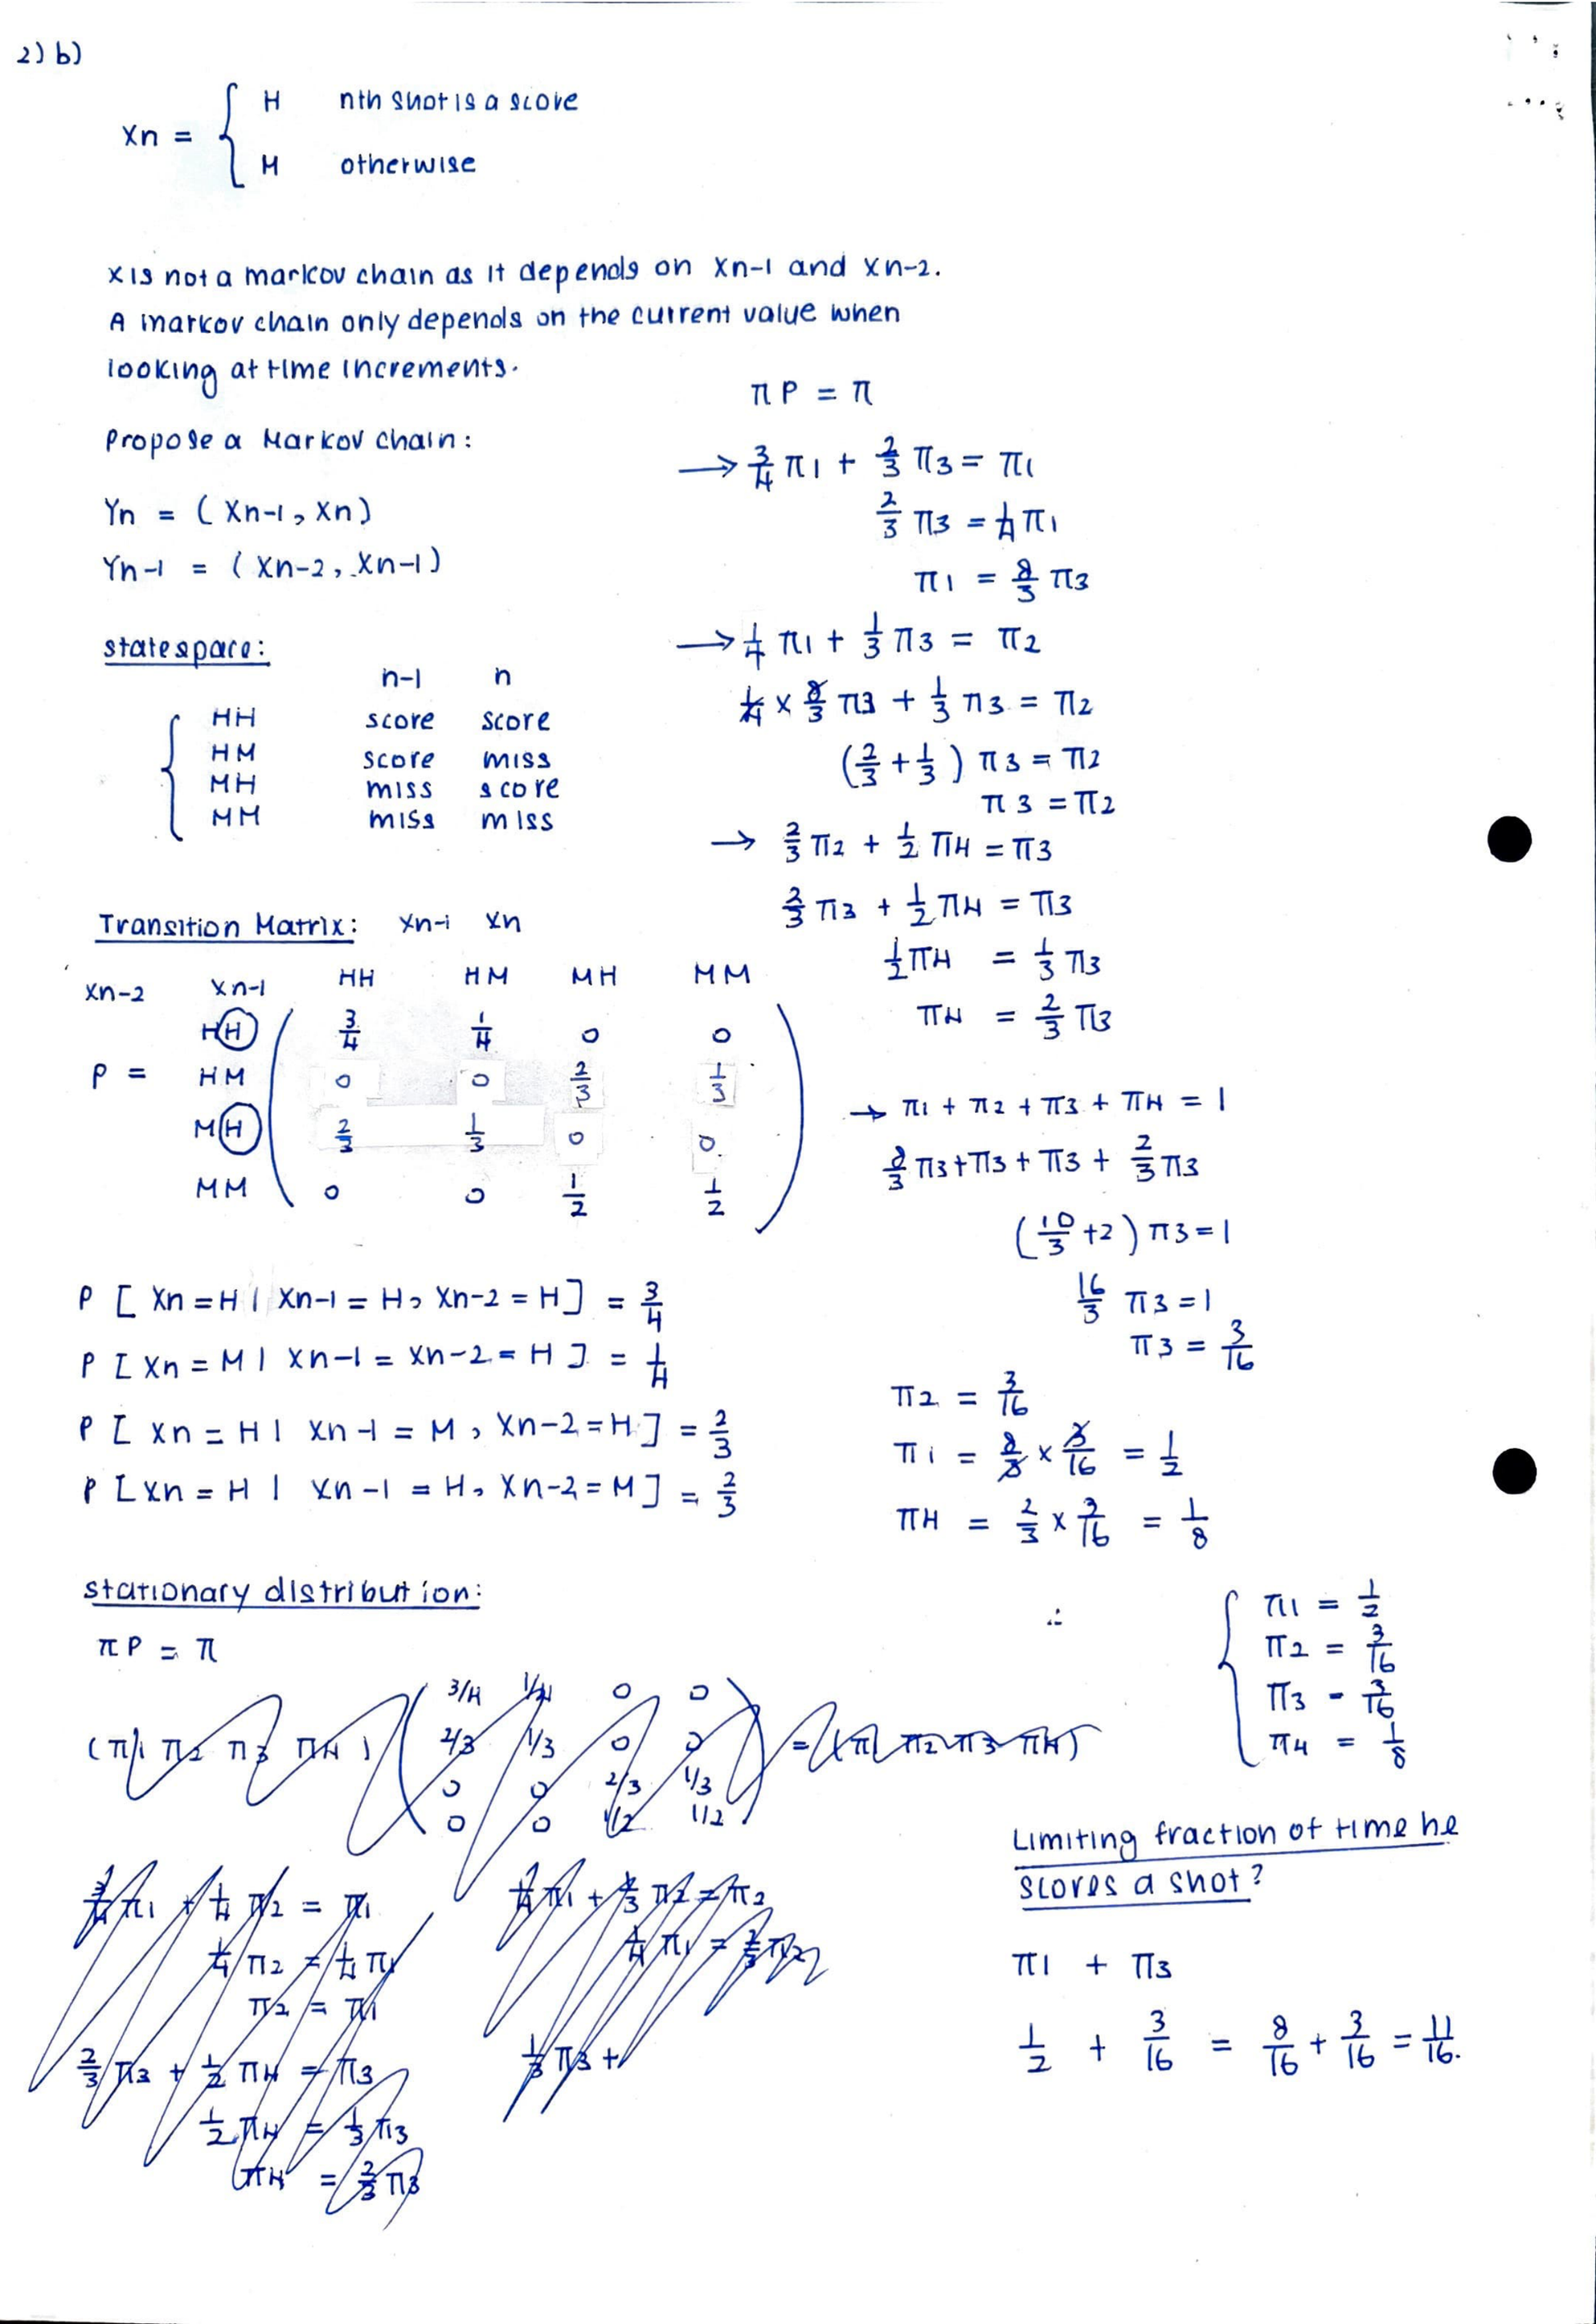 2) b)
Xn = { H nth shot is a score
M otherwise
X is not a markov chain as it depends on Xn-1 and Xn-2.
A markov chain only depends on the current value when
looking at time increments.
Propose a Markov chain:
Yn = (Xn-1, Xn)
Yn-1 = (Xn-2, Xn-1)
statespace:
n-1 n
HH score score
HM score miss
MH miss score
MM miss miss
Transition Matrix: Xn-1 Xn
Xn-2 Xn-1 HH HM MH MM
HH 3/4 1/4 0 0
P = HM 0 0 2/3 1/3
MH 2/3 1/3 0 0
MM 0 0 1/2 1/2
P [ Xn = H | Xn-1 = H, Xn-2 = H ] = 3/4
P [ Xn = M | Xn-1 = Xn-2 = H ] = 1/4
P [ Xn = H | Xn-1 = M, Xn-2 = H ] = 2/3
P [ Xn = H | Xn-1 = H, Xn-2 = M ] = 2/3
stationary distribution:
πP = π
(π1 π2 π3 π4) ( 3/4 1/4 0 0
2/3 1/3 0 0 ) = (π1 π2 π3 π4)
0 0 2/3 1/3
0 0 1/2 1/2
3/4 π1 + 1/4 π2 = π1
1/4 π2 = 1/4 π1
π2 = π1
2/3 π3 + 1/2 π4 = π3
1/2 π4 = 1/3 π3
π4 = 2/3 π3
1/4 π1 + 1/3 π2 = π2
1/4 π1 = 2/3 π2
1/3 π3 +
πP = π
→ 3/4 π1 + 2/3 π3 = π1
2/3 π3 = 1/4 π1
π1 = 8/3 π3
→ 1/4 π1 + 1/3 π3 = π2
1/4 × 8/3 π3 + 1/3 π3 = π2
(2/3 + 1/3) π3 = π2
π3 = π2
→ 2/3 π2 + 1/2 π4 = π3
2/3 π3 + 1/2 π4 = π3
1/2 π4 = 1/3 π3
π4 = 2/3 π3
→ π1 + π2 + π3 + π4 = 1
8/3 π3 + π3 + π3 + 2/3 π3
(10/3 + 2) π3 = 1
16/3 π3 = 1
π3 = 3/16
π2 = 3/16
π1 = 8/3 × 3/16 = 1/2
π4 = 2/3 × 3/16 = 1/8
∴ { π1 = 1/2
π2 = 3/16
π3 = 3/16
π4 = 1/8
Limiting fraction of time he
scores a shot?
π1 + π3
1/2 + 3/16 = 8/16 + 3/16 = 11/16.